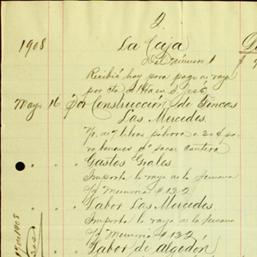 2.
1908 La Caja
Del número 1
Recibí hoy para pago de raya
por cta
Mayo 16 por Construcción de Fincas
Las Mercedes
libras pólvora
sacar cantera
Gastos Grales
Importe la raya de la semana
S/ Memoria # 132
Labor Las Mercedes
Importe la raya de la semana
S/ Memoria # 132
Labor de Algodón